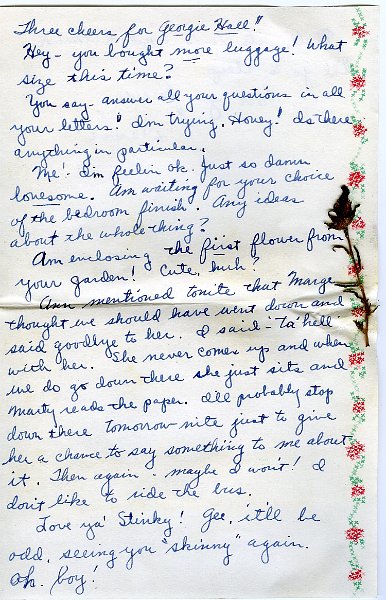 Three cheers for Georgie Hall!!
Hey - you bought more luggage! What
size this time?
You say - answer all your questions in all
your letters!! I'm trying. Honey! Is there
anything in particular.
Me! I'm feelin ok. Just so damn
lonesome. Am waiting for your choice
of the bedroom finish. Any ideas
about the whole thing?
Am enclosing the first flower from
your garden! Cute, huh?
Ann mentioned tonite that Marge
thought we should have went down and
said goodbye to her. I said - "Ta' hell"
with her. She never comes up and when
we do go down there she just sits and
Marty reads the paper. I'll probably stop
down there tomorrow nite just to give
her a chance to say something to me about
it. Then again - maybe I won't! I
don't like to ride the bus.
Love ya' Stinky! Gee, it'll be
odd, seeing you "skinny" again.
oh, boy!